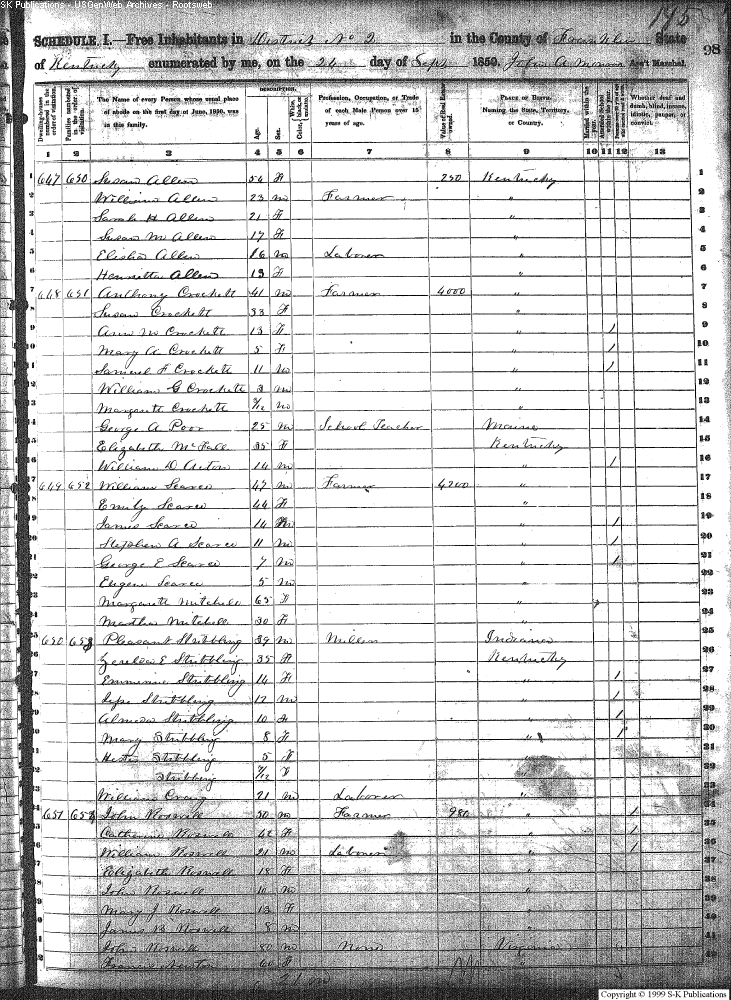 SK Publications - USGenWeb Archives - Rootsweb
195
SCHEDULE I.—Free Inhabitants in District No 2 in the County of Franklin State
98
of Kentucky enumerated by me, on the 26 day of Sept 1850. John A Ass't Marshal.
Dwelling-houses numbered in the order of visitation.
Families numbered in the order of visitation.
The Name of every Person whose usual place of abode on the first day of June, 1850, was in this family.
DESCRIPTION.
Age.
Sex.
White, black, or mulatto.
Color,
Profession, Occupation, or Trade of each Male Person over 15 years of age.
Value of Real Estate owned.
PLACE OF BIRTH. Naming the State, Territory, or Country.
Married within the year.
Whether deaf and dumb, blind, insane, idiotic, pauper, or convict.
1 2 3 4 5 6 7 8 9 10 11 12 13
1 647 650 Susan Allen 54 F 250 Kentucky 1
2 William Allen 23 m Farmer " 2
3 Sarah H Allen 21 F " 3
4 Susan M Allen 17 F " 4
5 Elisha Allen 16 m Laborer " 5
6 Henrietta Allen 13 F " 6
7 648 651 Anthony Crockett 41 m Farmer 4000 " 7
8 Susan Crockett 33 F " 8
9 Ann M Crockett 13 F " / 9
10 Mary A Crockett 5 F " / 10
11 Samuel F Crockett 11 m " / 11
12 William G Crockett 3 m " 12
13 Margarett Crockett /12 m " 13
14 George A Poor 25 m School Teacher Maine 14
15 Elizabeth McFall 35 F Kentucky 15
16 William D Acton 14 m " / 16
17 649 652 William Searce 47 m Farmer 4200 " 17
18 Emily Searce 44 F " 18
19 James Searce 14 m " / 19
20 Stephen A Searce 11 m " / 20
21 George E Searce 7 m " / 21
22 Eugene Searce 5 m " 22
23 Margarett Mitchell 65 F " 23
24 Martha Mitchell 30 F " 24
25 650 653 Pleasant Stribbling 39 m Miller Indiana 25
26 Zerelda E Stribbling 35 F Kentucky 26
27 Emmerine Stribbling 14 F " / 27
28 Stribbling 12 m " / 28
29 Almeda Stribbling 10 F " / 29
30 Mary Stribbling 8 F " / 30
31 Hester Stribbling 5 F " 31
32 Stribbling /12 F " 32
33 William Craig 21 m Laborer " 33
34 651 John Roswell 50 m Farmer 980 " / 34
35 Catherine Roswell 42 F " / 35
36 William Roswell 21 m Laborer " / 36
37 Elizabeth Roswell 18 F " 37
38 John Roswell 10 m " 38
39 Mary J Roswell 13 F " 39
40 James B Roswell 8 m " 40
41 John Roswell 80 m None Virginia 41
42 Francis Newton 60 F " 42
21 m
Copyright © 1999 S-K Publications